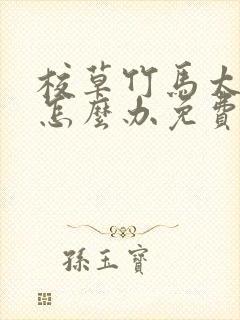 校草竹馬太
怎麼办免費
孫玉寶